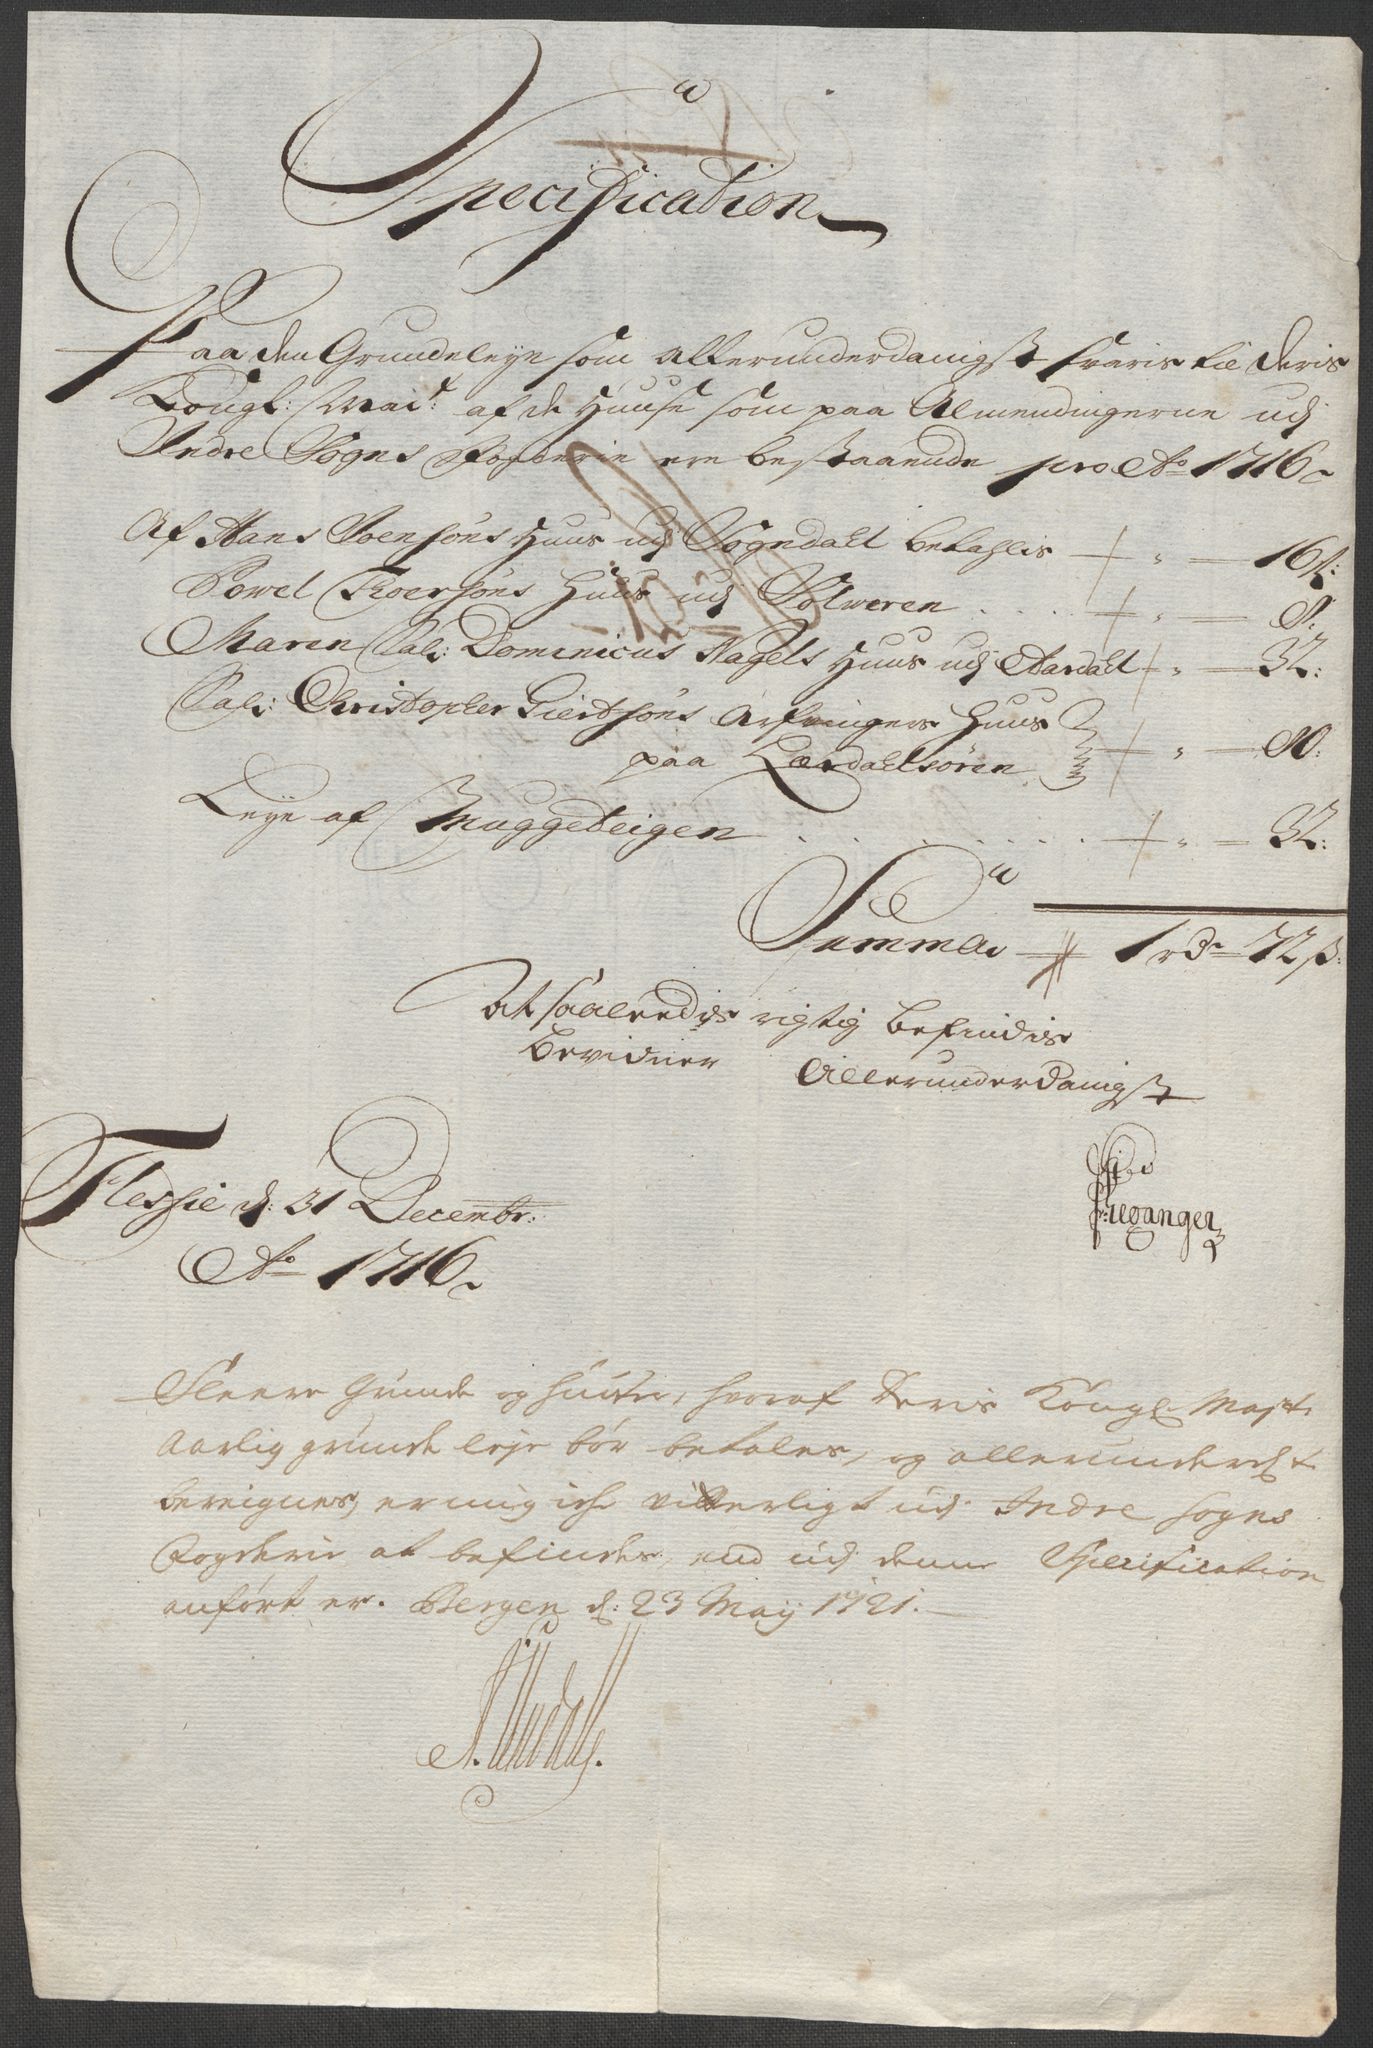 Specification
Paa den Grundeleye som allerunderdanigst svaris til Deris
Kongl: Mai: af de Huuse som paa Almendingerne udj
Indre Sogns Fogderie ere bestaaende pro Ao 1716
Af Hans Svensøns Huus udj Sogndahl betahlis " 16 ß:
Powel Iversøns Huus udj Solworen . . . . " 8:
Maren Sal: Dominicus Nagels Huus udj Aardahl " 32:
Sal: Christopher Giertsøns Arfvingers Huus
paa Lærdahlsøren " 80:
Leye af Muggeteigen . . . . . . . " 32:
Summa 1 rdr 72 ß:
At saaleedis rigtig befindis
bevidner Allerunderdanigst
Flessie d: 31 Decembr:
Ao 1716
Fleere grunde og huuse, hvoraf Deris Kongl Mayt:
Aarlig grunde leje bør betales, og allerunderd:t
bereignes, er mig iche vitterligt udj Indre Sogns
Fogderie at befindes, end udj denne Specification
anført er. Bergen d: 23 May 1721.